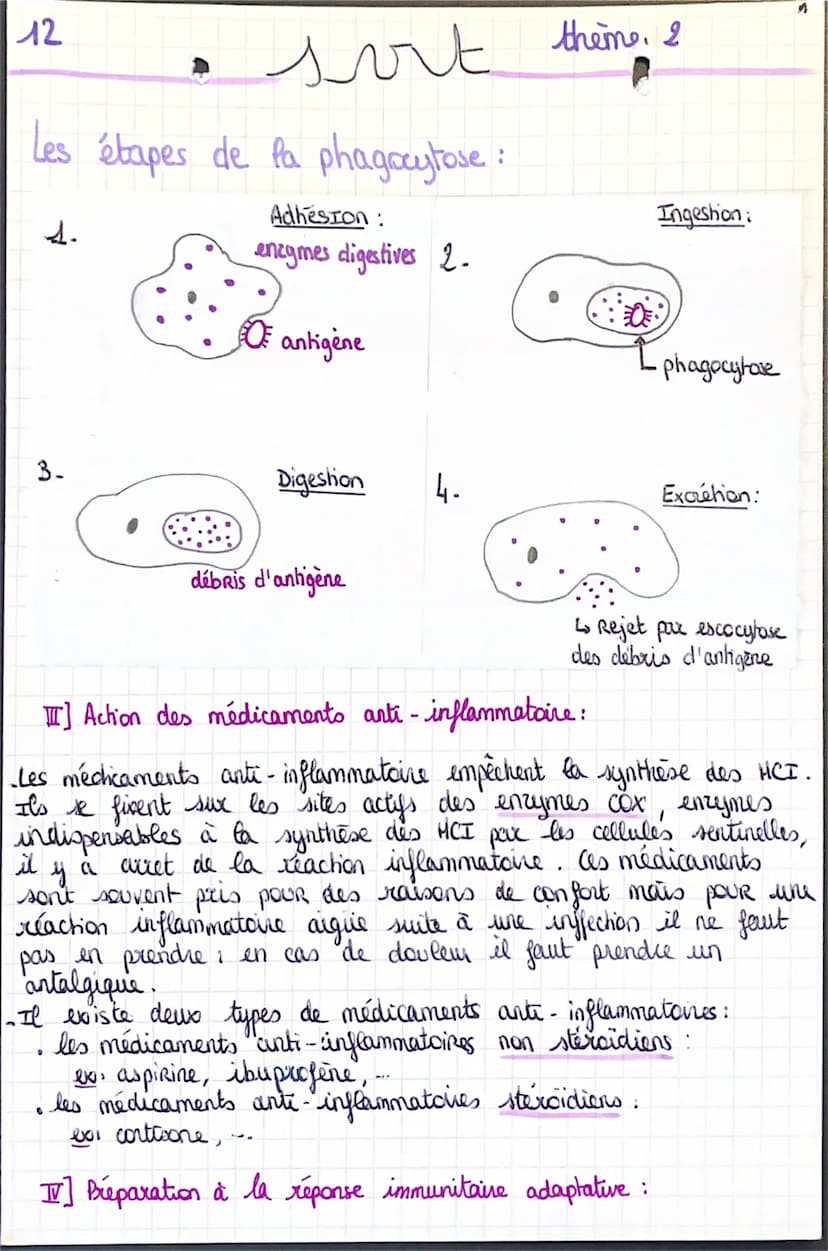 12
svt
thème. 2
Les étapes de la phagocytose :
1.
Adhésion :
enzymes digestives
antigène
2.
Ingestion :
phagocytose
3.
Digestion
débris d'antigène
4.
Excrétion :
↳ Rejet par escocytose
des débris d'antigène
III] Action des médicaments anti-inflammatoire :
.Les médicaments anti-inflammatoire empêchent la synthèse des HCI.
Ils se fixent sur les sites actifs des enzymes COX, enzymes
indispensables à la synthèse des HCI par les cellules sentinelles,
il y a arret de la réaction inflammatoire. Ces médicaments
sont souvent pris pour des raisons de confort mais pour une
réaction inflammatoire aigüe suite à une inffection il ne faut
pas en prendre ; en cas de douleur il faut prendre un
antalgique.
-Il existe deux types de médicaments anti-inflammatoires :
. les médicaments anti-inflammatoires non stéroïdiens :
ex: aspirine, ibuprofène, ...
. les médicaments anti-inflammatoires stéroïdiens :
ex: cortisone, ...
IV] Préparation à la réponse immunitaire adaptative :